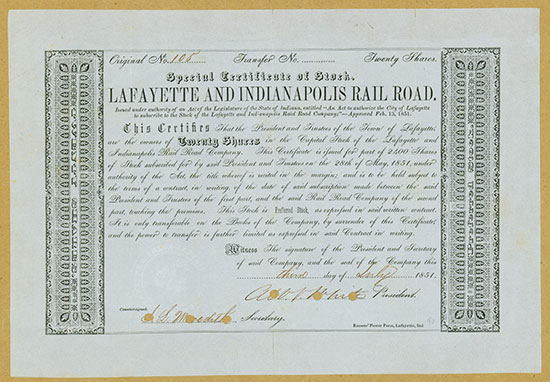 Original No. 105 Transfer No. Twenty Shares.
Special Certificate of Stock.
LAFAYETTE AND INDIANAPOLIS RAIL ROAD.
Issued under authority of an Act of the Legislature of the State of Indiana, entitled "An Act to authorize the City of Lafayette
to subscribe to the Stock of the Lafayette and Indianapolis Raid Road Company:"—Approved Feb. 13, 1851.
This Certifies That the President and Trustees of the Town of Lafayette,
are the owners of Twenty Shares in the Capital Stock of the Lafayette and
Indianapolis Rail Road Company. This Certificate is issued for part of 2100 Shares
of Stock subscribed for by said President and Trustees on the 28th of May, 1851, under
authority of the Act, the title whereof is recited in the margin; and is to be held subject
to the terms of a contract, in writing, of the date of said subscription made between the said
President and Trustees of the first part, and the said Rail Road Company of the second
part, touching the premises. This Stock is Preferred Stock, as expressed in said written contract.
It is only transferable on the Books of the Company, by surrender of this Certificate;
and the power to transfer is further limited as expressed in said Contract in writing.
Witness The signature of the President and Secretary
of said Company, and the seal of the Company this
third day of July 1851.
President.
Countersigned,
Secretary.
Rosser' Power Press, Lafayette, Ind